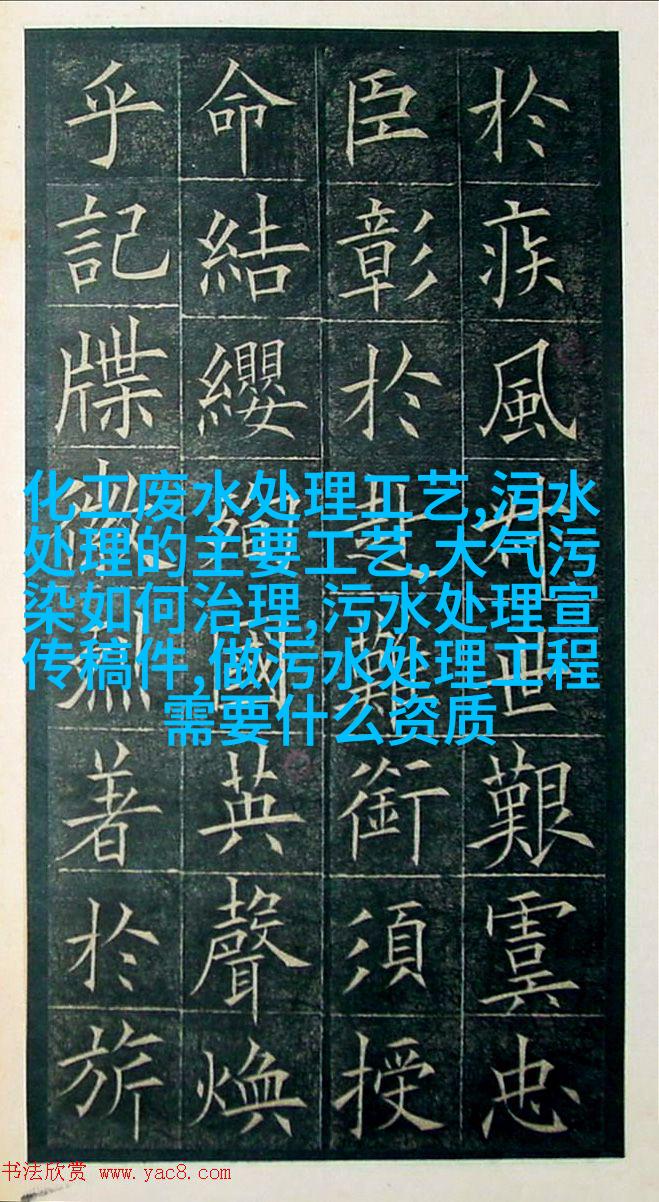 於疾風世艱虞忠
臣彰於赴難銜須授
命結纓殉國英聲煥
乎記牒徽烈著於旂
化工废水处理工艺,污水
处理的主要工艺,大气污
染如何治理,污水处理宣
传稿件,做污水处理工程
需要什么资质
书法欣赏 www.yac8.com